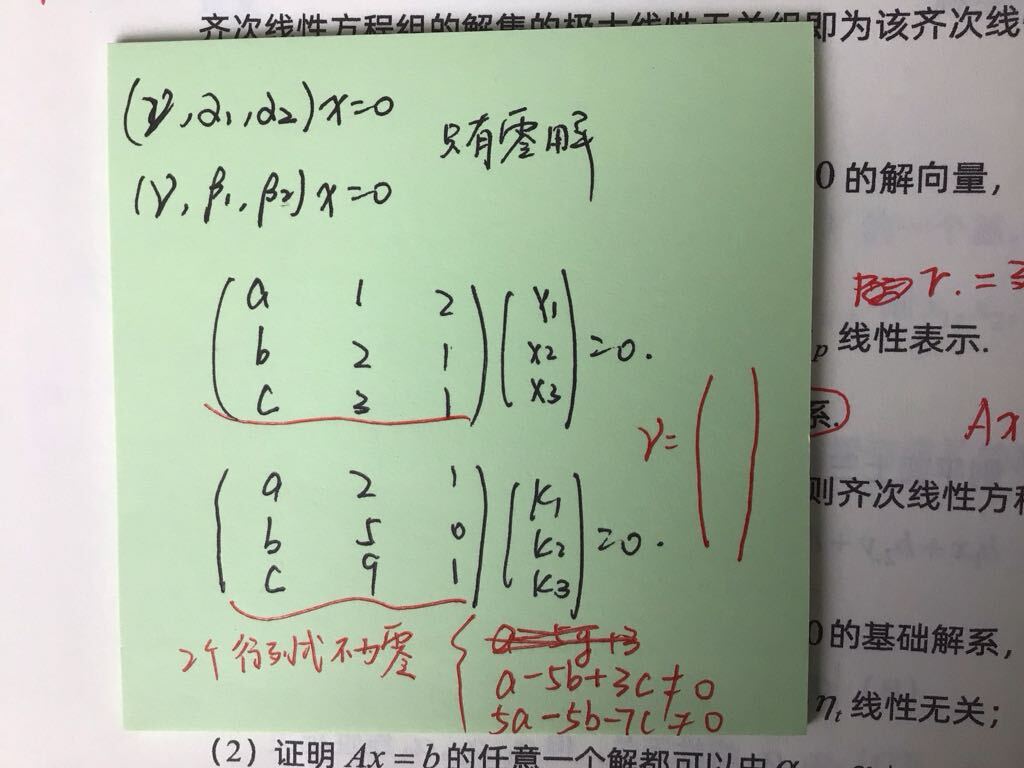 齐次线性方程组的解集的极大线性无关组即为该齐次线
(γ,α1,α2)x=0
只有零解
(γ,β1,β2)x=0
0的解向量，
r.=3
p 线性表示.
(a 1 2
b 2 1
c 3 1) (x1
x2
x3) =0.
系.
Ax
γ=( )
则齐次线性方程
(a 2 1
b 5 0
c 9 1) (k1
k2
k3) =0.
2个行列式不为零
{ a-5b+3c≠0
5a-5b-7c≠0
0的基础解系，
ηt 线性无关；
（2）证明 Ax=b的任意一个解都可以由